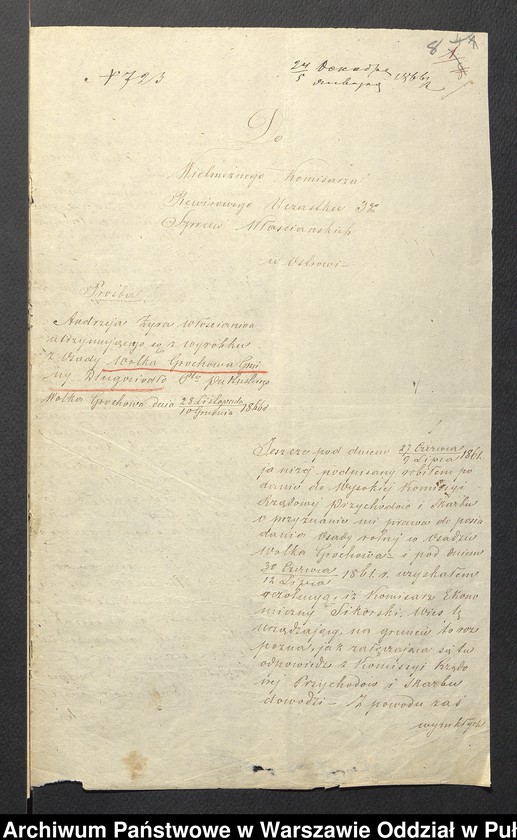 № 723
24 Декабря
5 января 1866/7
8
Do
Wielmożnego Komisarza
Rewirowego Uczastku 3go
Spraw Włościańskich
w Ostrowi
Prośba
Andrzeja Żyra Włościanina
utrzymującego się z wyrobku
z Osady Wolka Grochowa Gmi
ny Długosiodło Ptu Pułtuskiego
Wolka Grochowa dnia 28 Listopada
10 Grudnia 1866 r
Jeszcze pod dniem 27 Czerwca
9 Lipca 1861.
ja niżej podpisany zrobiłem po
danie do Wysokiej Komissyi
Rządowej Przychodów i Skarbu
o przyznanie mi prawa do posia
dania Osady rolnej w Osadzie
Wolka Grochowa i pod dniem
30 Czerwca
12 Lipca 1861 r. uzyskałem
rezolucyą, iż Komisarz Ekono
miczny Sikorski, Wieś tę
urządzający, na gruncie to roz
pozna, jak załączająca się tu
odpowiedź z Komissyi Rządo
wej Przychodów i Skarbu
dowodzi – Z powodu zaś
wynikłych
Archiwum Państwowe w Warszawie Oddział w Puł